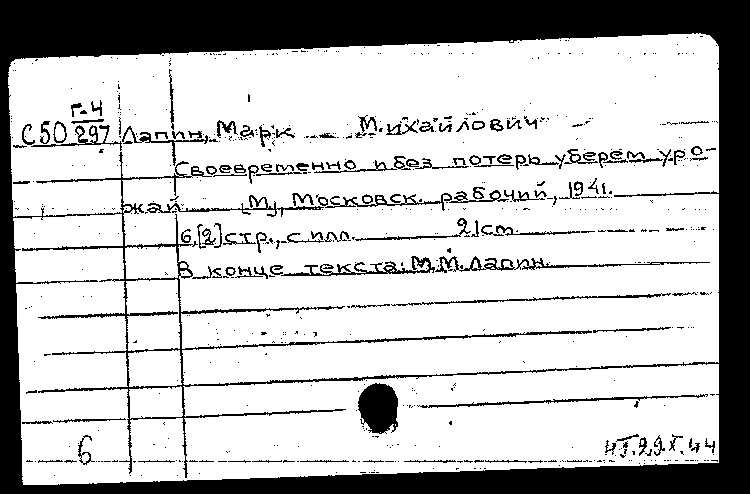 Г-4
С50 297 Лапин, Марк Михайлович
Своевременно и без потерь уберем уро-
жай [М], Московск. рабочий, 1941.
6,[2] стр., с илл. 21 cm
В конце текста: М.М. Лапин.
6
29.X.44